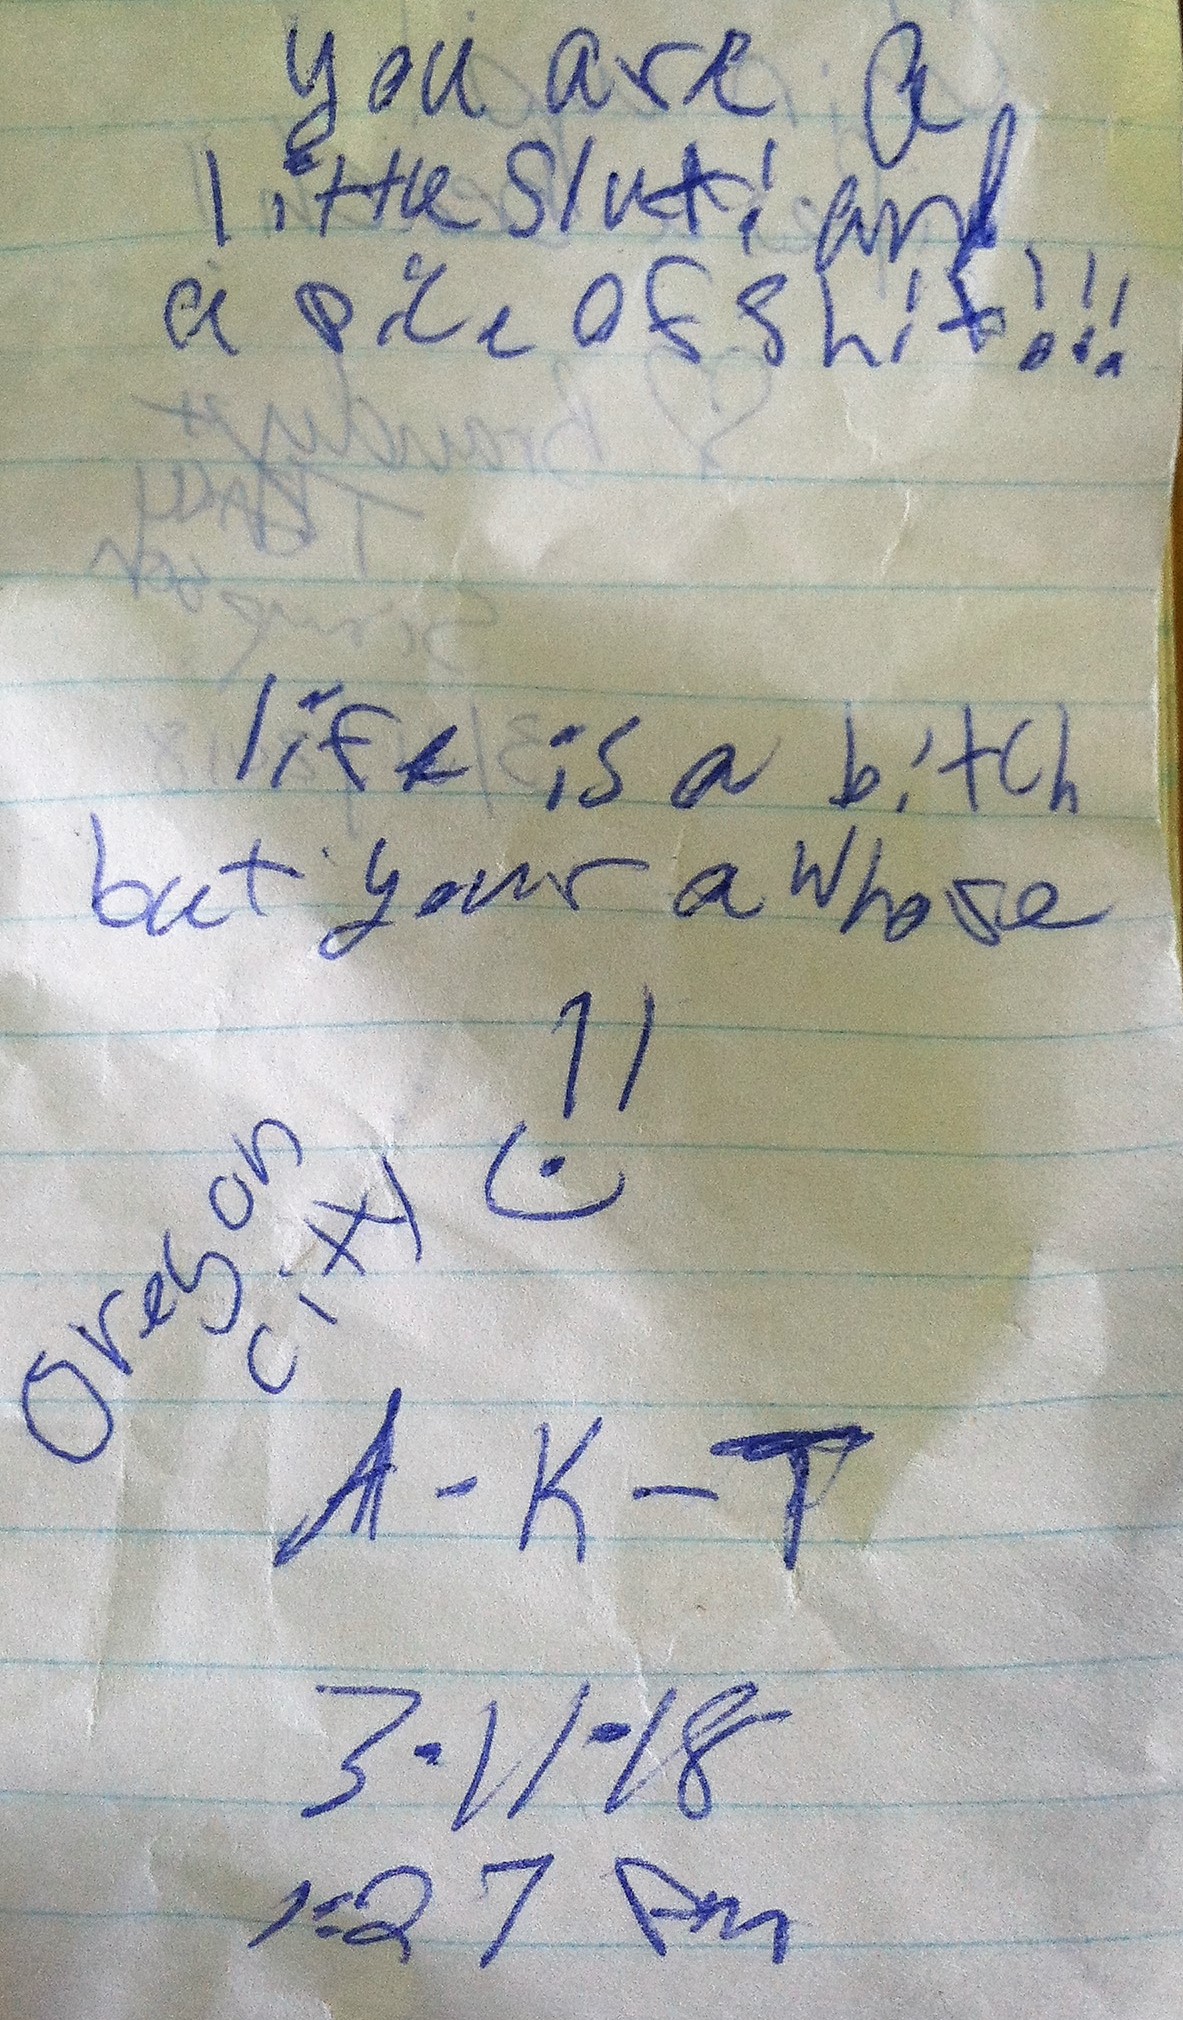 you are a
little slut! and
a pile of shit!!!
life is a bitch
but your a whore
!!
Oregon
city
A-K-T
3.11.18
1:27 Pm